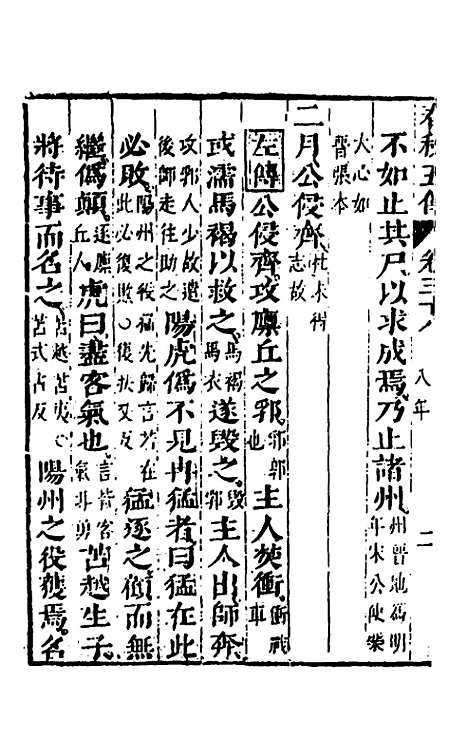 春秋五傳 卷三十八 八年 二
不如止其尸以求成焉乃止諸州州晉地爲明年宋公使樂
大心如晉張本
二月公侵齊杜未得志故
左傳公侵齊攻廩丘之郛郛郭也主人焚衝衝戎車
或濡馬褐以救之馬褐馬衣遂毀之毀郛主人出師奔
攻郛人少故遣後師走往助之陽虎僞不見冉猛者曰猛在此
必敗陽州之役猛先歸言若在此必復敗○復扶又反猛逐之顧而無
繼僞顛逐廩丘人虎曰盡客氣也言皆客氣非勇苫越生子
將待事而名之苫越苫夷○苫式占反陽州之役獲焉名